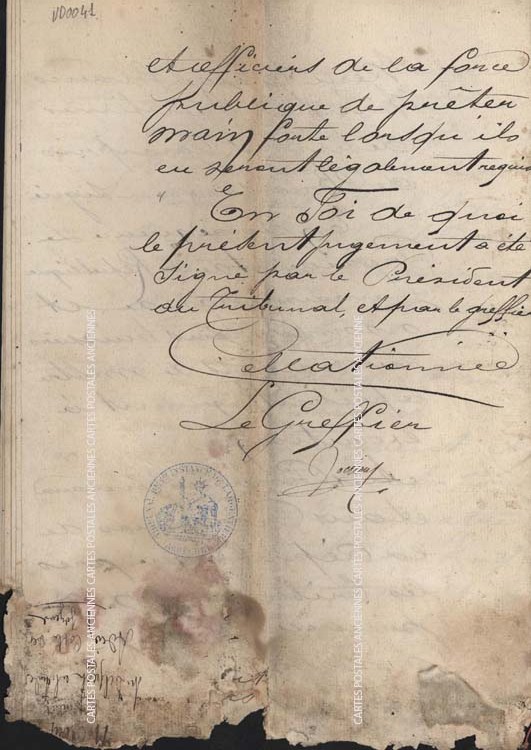 VD0041
et officiers de la force
publique de prêter
main forte lorsqu'ils
en seront légalement requis
En Foi de quoi
le présent jugement a été
signé par le Président
du Tribunal, et par le greffier
Collationnée
Le Greffier
TRIBUNAL
CARTES POSTALES ANCIENNES CARTES POSTALES ANCIENNES CARTES POSTALES ANCIENNES
CARTES POSTALES ANCIENNES CARTES POSTALES ANCIENNES CARTES POSTALES ANCIENNES